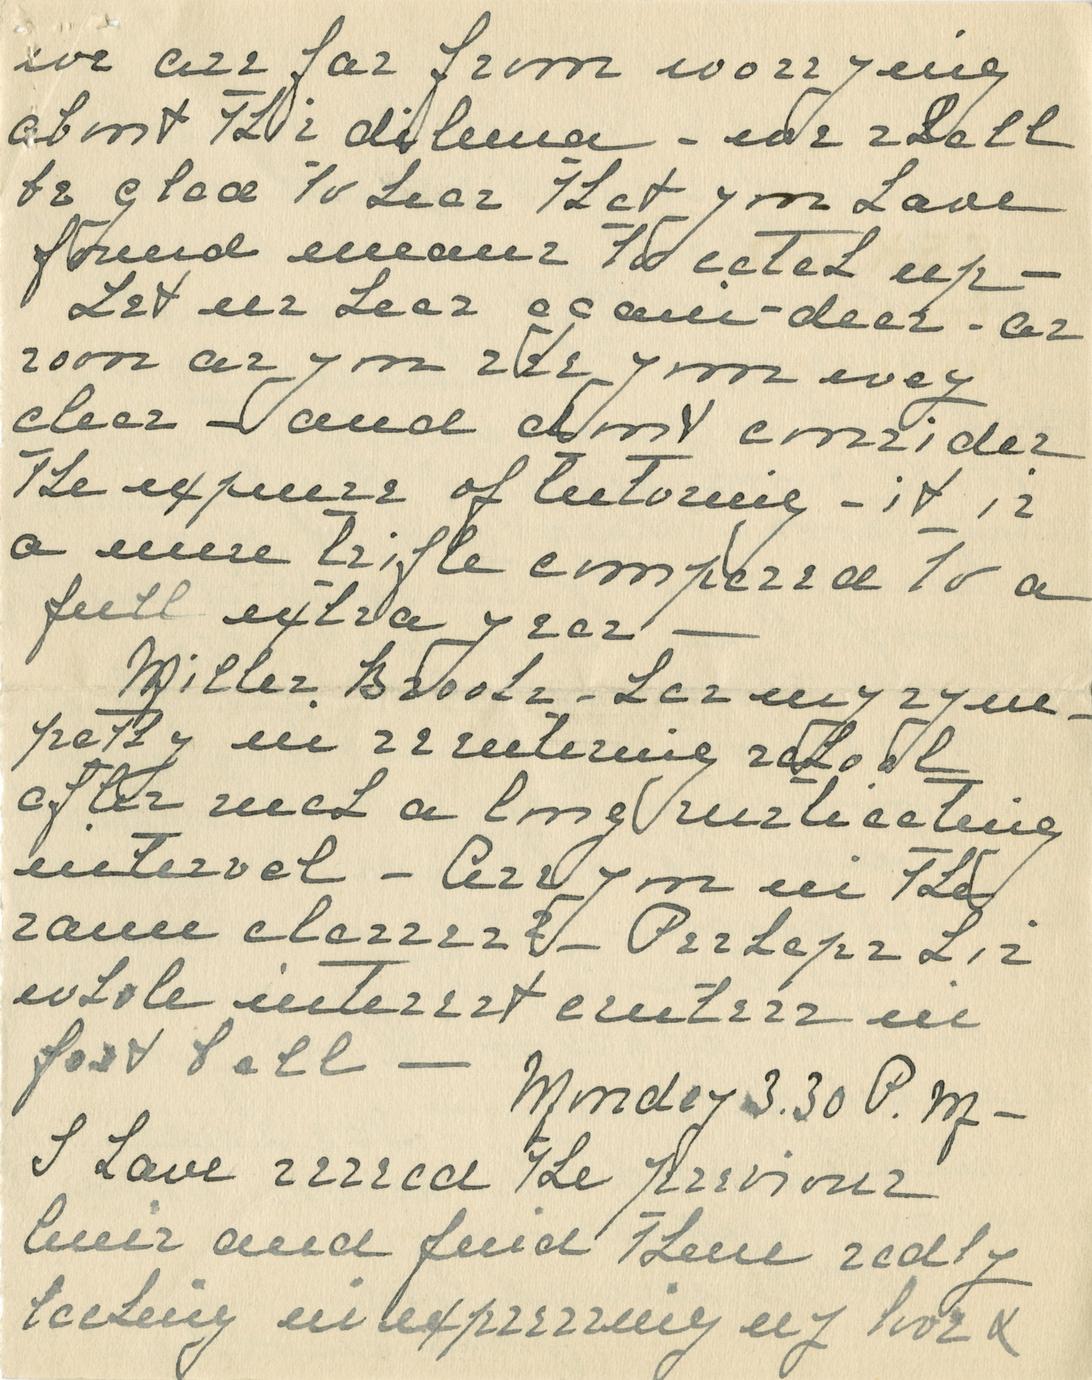 we are far from worrying
about this dilema - we shall
be glad to hear that you have
found means to catch up -
Let us hear again - dear - as
soon as you see your way
clear - and dont consider
the expense of tutoring - it is
a mere trifle compared to a
full extra year -
Miller Brooks - has my sym-
pathy in reentering school
after such a long rusticating
interval - Are you in the
same classes? - Perhaps his
whole interest centers in
foot ball -
Monday 3.30 P. M -
I have reread the previous
lines and find them sadly
lacking in expressing my